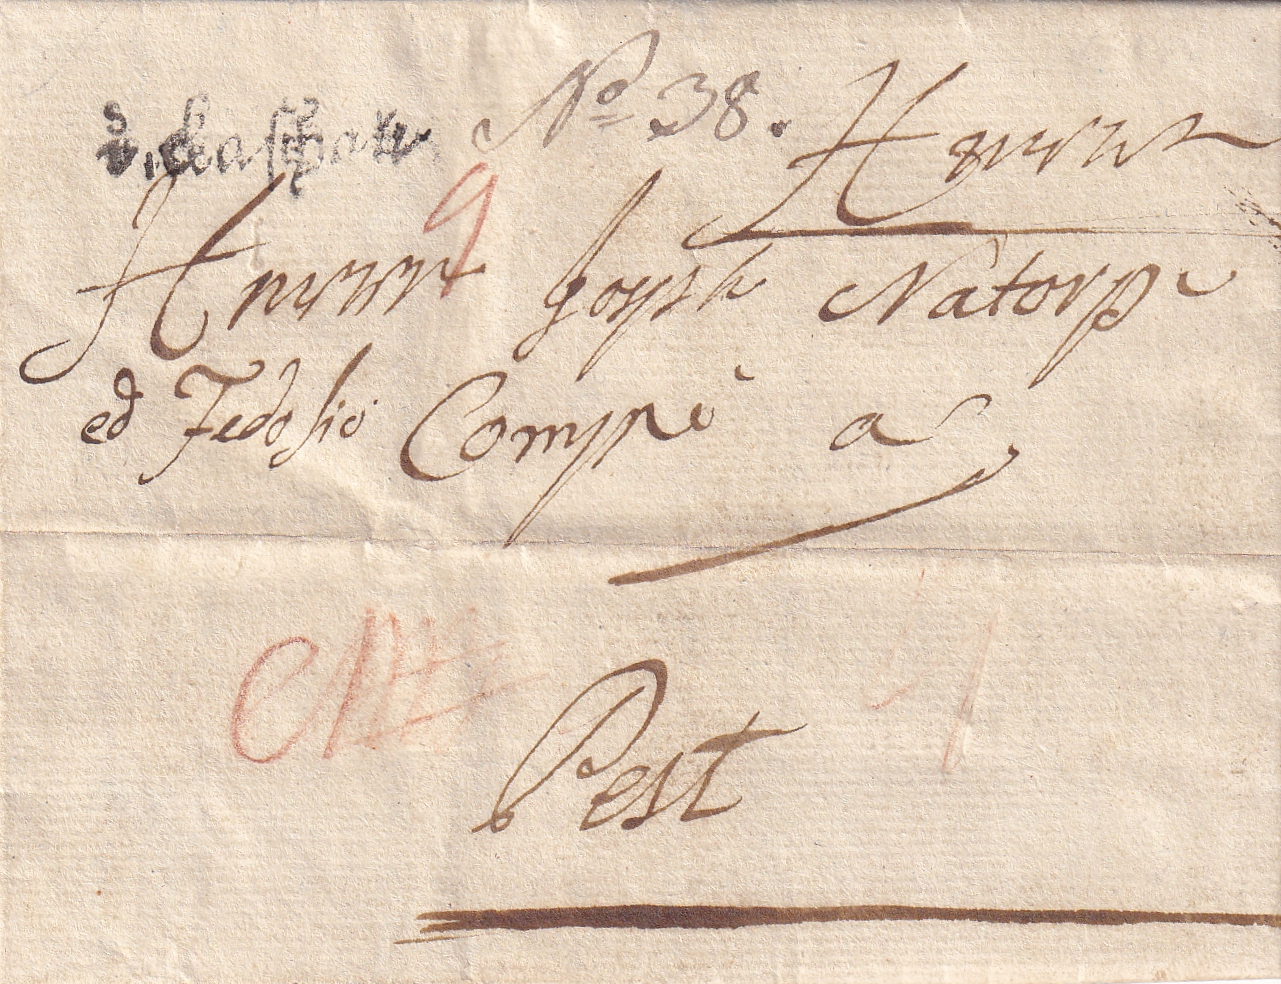 v. Caschau
No 38.
Herrn
9
Herrn Joseph Natorp
ed Fedosio Comp a
Pest